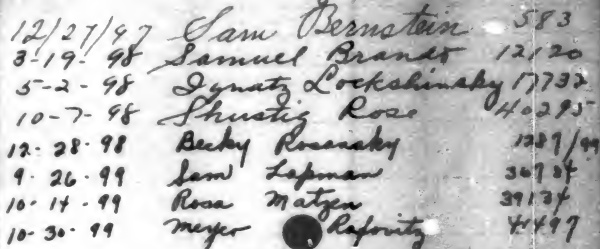 12/27/97 Sam Bernstein 583
3-19-98 Samuel Brando 12120
5-2-98 Ignatz Lockshinsky 17732
10-7-98 Shustig Rose 40295
12-28-98 Becky Rosansky 1289/99
9-26-99 Sam Lapman 36934
10-14-99 Rosa Matzen 39134
10-30-99 Meyer Rafovitz 41497